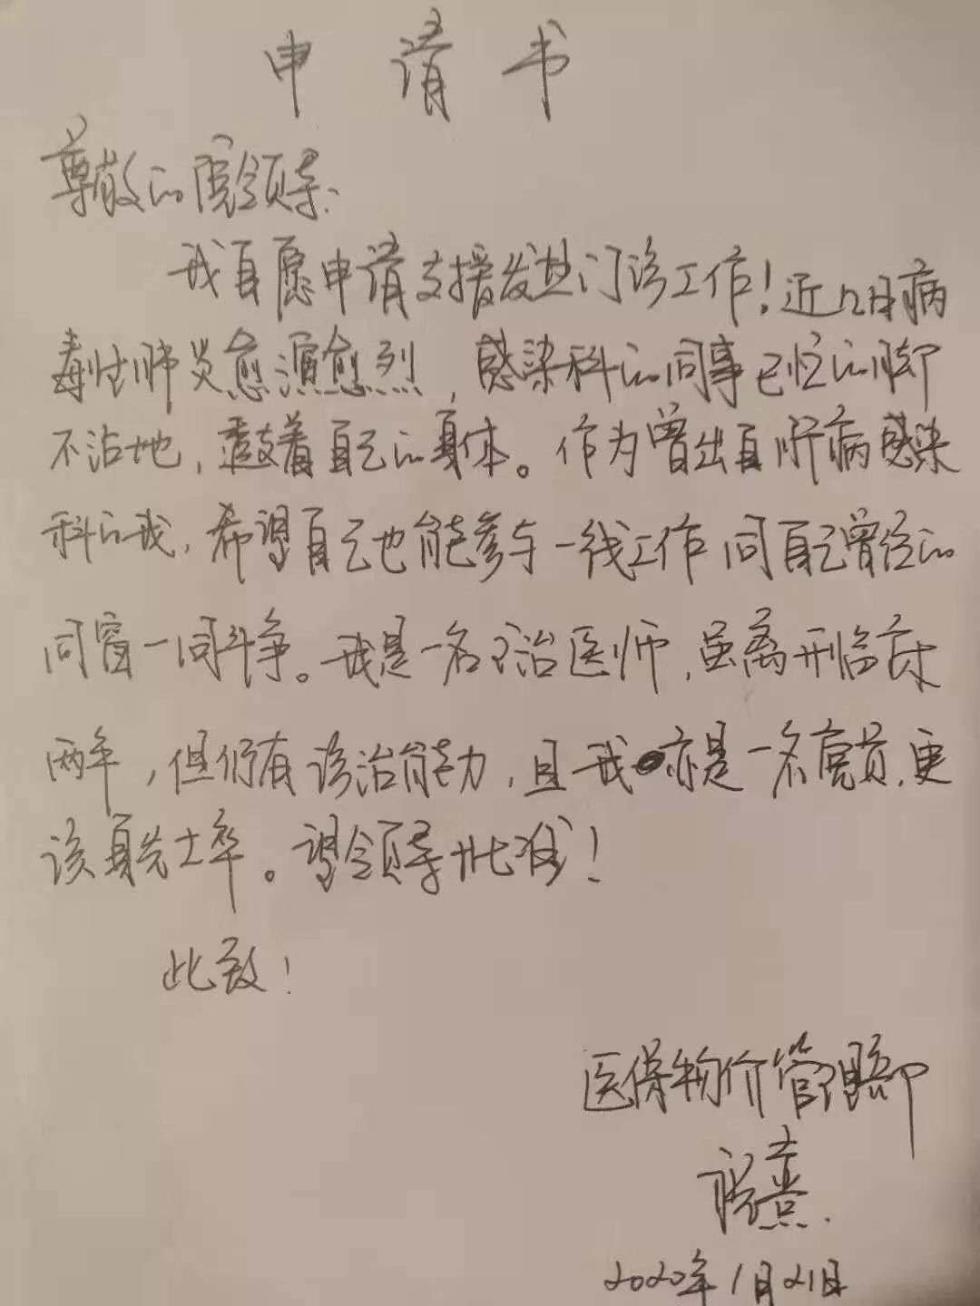 申请书
尊敬的院领导:
我自愿申请支援发热门诊工作!近几日病
毒性肺炎愈演愈烈,感染科的同事已忙的脚
不沾地,透支着自己的身体。作为曾出自肝病感染
科的我,希望自己也能参与一线工作同自己曾经的
同窗一同斗争。我是一名主治医师,虽离开临床
两年,但仍有诊治能力,且我亦是一名党员,更
该身先士卒。望领导批准!
此致!
医保物价管理部
2020年1月21日